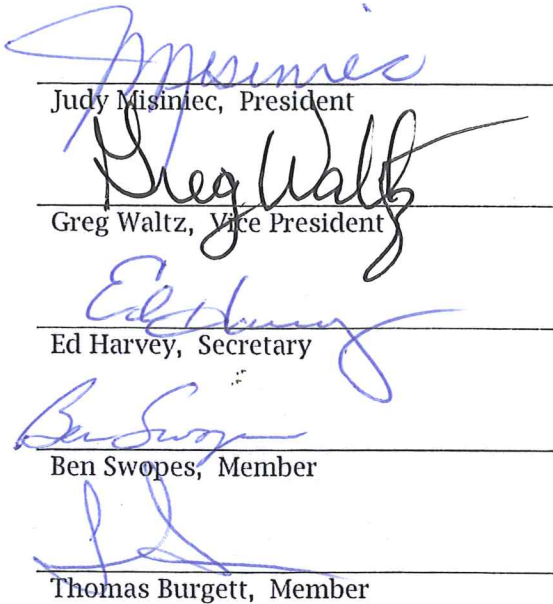 JMisiniec
Judy Misiniec, President
Greg Waltz
Greg Waltz, Vice President
Ed Harvey
Ed Harvey, Secretary
Ben Swopes
Ben Swopes, Member
Thomas Burgett, Member